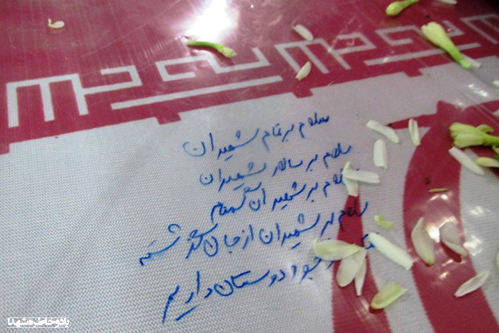 سلام بر تمام شهیدان
سلام بر سالار شهیدان
سلام بر شهیدان گمنام
سلام بر شهیدان از جان گذشته
دوستتان داریم
یاد و خاطره شهدا